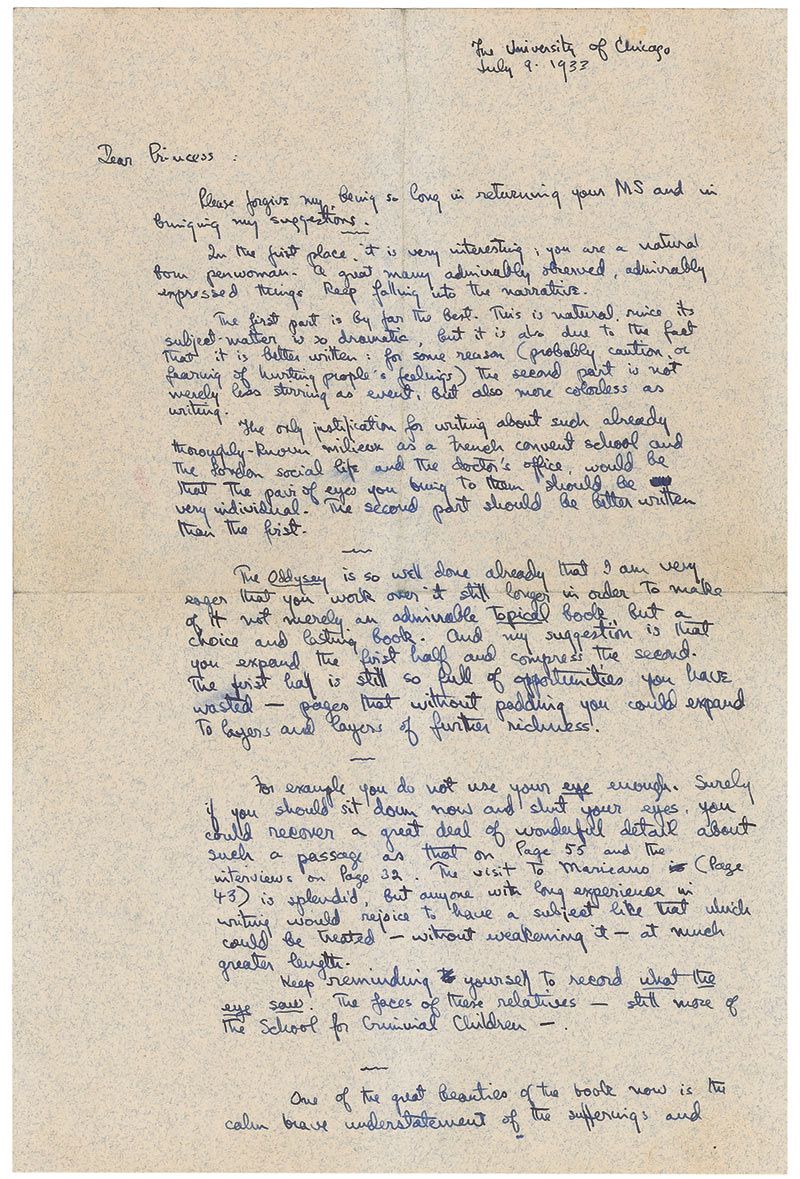 The University of Chicago
July 9. 1933
Dear Princess :
Please forgive my being so long in returning your MS and in
bringing my suggestions.
In the first place, it is very interesting; you are a natural
born penwoman. A great many admirably observed, admirably
expressed things keep falling into the narrative.
The first part is by far the best. This is natural, since its
subject-matter is so dramatic, but it is also due to the fact
that it is better written: for some reason (probably caution, or
fearing of hurting people's feelings) the second part is not
merely less stirring as event, but also more colorless as
writing.
The only justification for writing about such already
thoroughly-known milieux as a French convent school and
the London social life and the doctor's office, would be
that the pair of eyes you bring to them should be
very individual. The second part should be better written
than the first.
—
The Oddysey is so well done already that I am very
eager that you work over it still longer in order to make
of it not merely an admirable topical book, but a
choice and lasting book. And my suggestion is that
you expand the first half and compress the second.
The first half is still so full of opportunities you have
wasted — pages that without padding you could expand
to layers and layers of further richness.
—
For example you do not use your eye enough. Surely
if you should sit down now and shut your eyes, you
could recover a great deal of wonderful detail about
such a passage as that on Page 55 and the
interviews on Page 32. The visit to Maricano (Page
43) is splendid, but anyone with long experience in
writing would rejoice to have a subject like that which
could be treated — without weakening it — at much
greater length.
Keep reminding yourself to record what the
eye saw. The faces of these relatives — still more of
the School for Criminal Children —.
—
One of the great beauties of the book now is the
calm brave understatement of the sufferings and